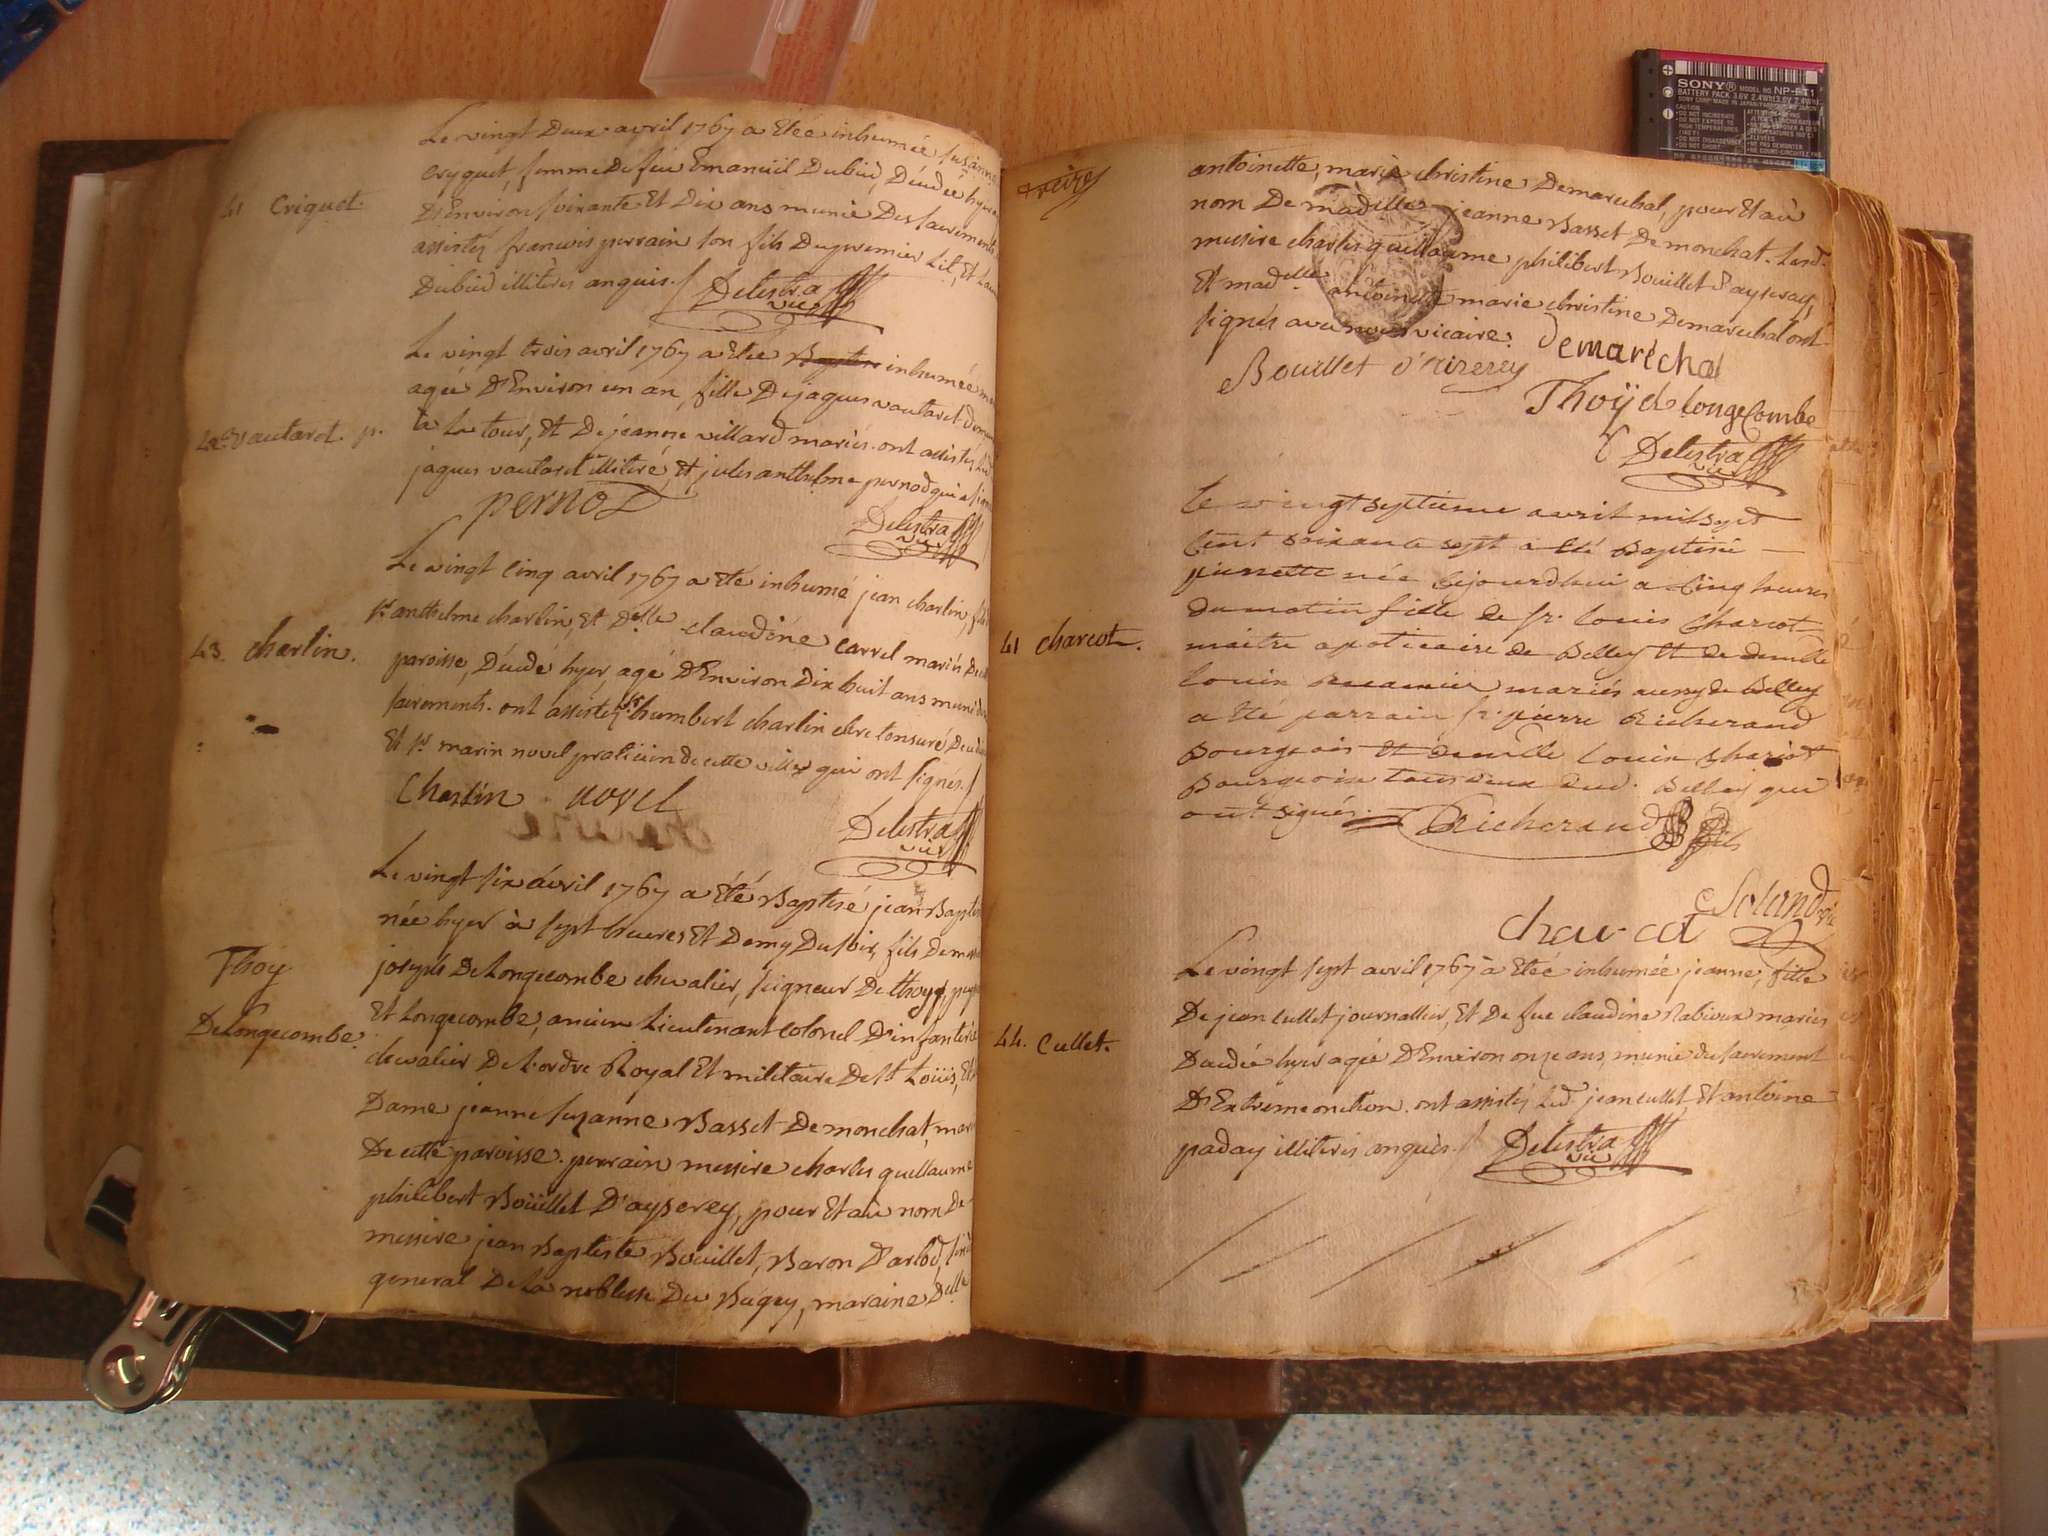 Le vingt Deux avril 1767 a Eteé inhumée susanne
Cryquet, femme De feu Emanuïl Dubied, Décedée hyer
D'Environ soixante Et Dix ans munie Des sacrements
assistéz francois perrain son fils Du premier Lit, Et
Dubied illitéres anquis./. Delestra vic
41 Criquet.
Le vingt trois avril 1767 a Eteé Baptise inhumée
agée D'Environ un an, fille De jaques vautaret
à La tour, Et De jeanne villard mariés. ont assistéz Led
jaques vautaret illiteré, Et jules anthelme pernod qui a signé
42 vautaret. p.
pernod
Delestra vic
Le vingt Cinq avril 1767 a Eté inhumé jean charlin, fils
sr anthelme charlin, Et Delle claudine carrel mariés De
paroisse, Décedé hyer, agé D'Environ Dix huit ans muni
sacrements. ont assistéz sr humbert charlin clerc tonsuré
Et sr marin novel praticien de cette ville qui ont signés./
43. charlin.
Charlin novel
Delestra vic
Le vingt six avril 1767 a Eté Baptisé jean Baptiste
née hyer à sept heures Et Demy Du soir, fils De
joseph De Longecombe chevalier, seigneur De thoy,
Et Longecombe, ancien Lieutenant Colonel D'infanterie
chevalier De L'ordre Royal Et militaire De St Loüis, Et
Dame jeanne suzanne Basset De monchat, mariés
De cette paroisse. parrain messire charles guillaume
philibert Boüillet D'ayserey, pour Et au nom De
messire jean Baptiste Bouillet, Baron D'arlod,
general De La noblesse Du Bugey, maraine Delle
Thoy
De Longecombe.
treize
antoinette, marie christine Demarechal, pour Et au
nom De madelle jeanne Basset De monchat. Led.
messire charles guillaume philibert Bouillet D'ayserey,
Et madelle antoinette marie christine Demarechal ont
signés avec nous vicaire. Demaréchal
Bouillet d'aizerey
Thoÿ de longeCombe
Delestra vic
Le vingt septieme avril mil sept
Cent soixante sept a été Baptisée
pierrette née cejourdhui a Cinq heures
du matin fille de sr. Louis Charcot
maitre apoticaire de Belley et de demlle
Louise mariés aussy de Belley
a été parrain sr. pierre Richerand
Bourgeois et demlle Louise Charcot
Bourgeoise tous deux dud. Belley qui
ont signés.
41 Charcot.
Richerand fils
charcot
Le vingt sept avril 1767 à Eteé inhumée jeanne, fille
De jean cullet journallier, Et De fue claudine Rabioux mariés
Decedée hyer agée D'Environ onze ans, munie du sacrement
D'Extreme onction. ont assistéz Led. jean cullet, Et antoine
paday illiteris anquis./. Delestra vic
44. Cullet.
SONY MODEL NO. NP-FT1
BATTERY PACK 3.6V 2.4Wh